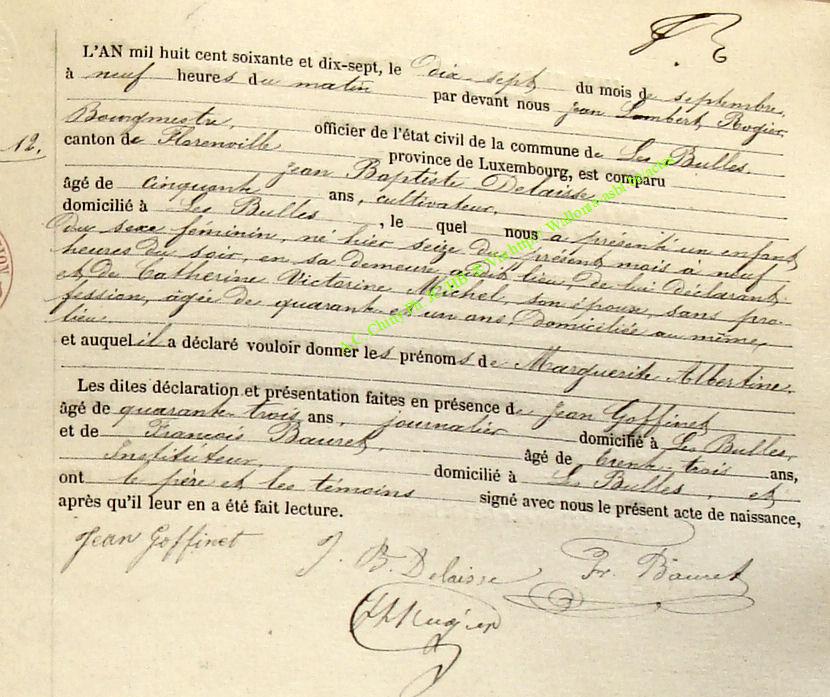 L'AN mil huit cent soixante et dix-sept, le dix-sept du mois de septembre,
à neuf heures du matin par devant nous Jean Lambert Rogier
Bourgmestre, officier de l'état civil de la commune de Les Bulles,
12.
canton de Florenville province de Luxembourg, est comparu
Jean Baptiste Delaisse
âgé de cinquante ans, cultivateur,
domicilié à Les Bulles, le quel nous a présenté un enfant
du sexe féminin, né hier seize du présent mois à neuf
heures du soir, en sa demeure audit lieu, de lui déclarant
et de Catherine Victorine Michel, son épouse, sans pro-
fession, âgée de quarante et un ans, Domiciliée au même
lieu
et auquel il a déclaré vouloir donner les prénoms de Marguerite Albertine.
Les dites déclaration et présentation faites en présence de Jean Goffinet
âgé de quarante-trois ans, journalier domicilié à Les Bulles,
et de François Bauret, âgé de trente-trois ans,
Instituteur domicilié à Les Bulles, et
ont le père et les témoins signé avec nous le présent acte de naissance,
après qu'il leur en a été fait lecture.
Jean Goffinet J. B. Delaisse Fr. Bauret